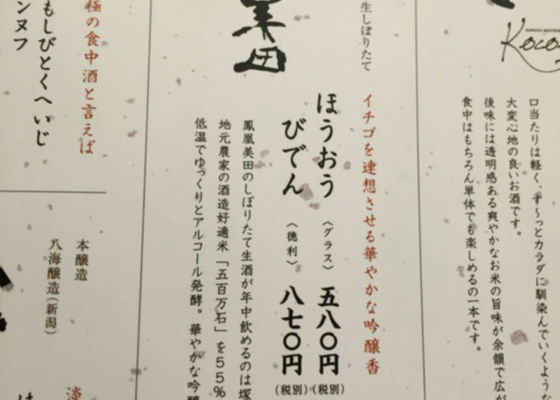 Koco
口当たりは軽く、す〜っとカラダに馴染んでいくような
大変心地の良いお酒です。
後味には透明感ある爽やかなお米の旨味が余韻で広が
食中はもちろん単体でも楽しめるの一本です。
生しぼりたて
美田
イチゴを連想させる華やかな吟醸香
ほうおう
びでん
〈グラス〉 五八〇円(税別)
〈徳利〉 八七〇円(税別)
鳳凰美田のしぼりたて生酒が年中飲めるのは塚
地元農家の酒造好適米「五百万石」を55%
低温でゆっくりとアルコール発酵。華やかな吟醸
極の食中酒と言えば
もしびとくへいじ
ンヌフ
本醸造
八海醸造(新潟)
淡
は